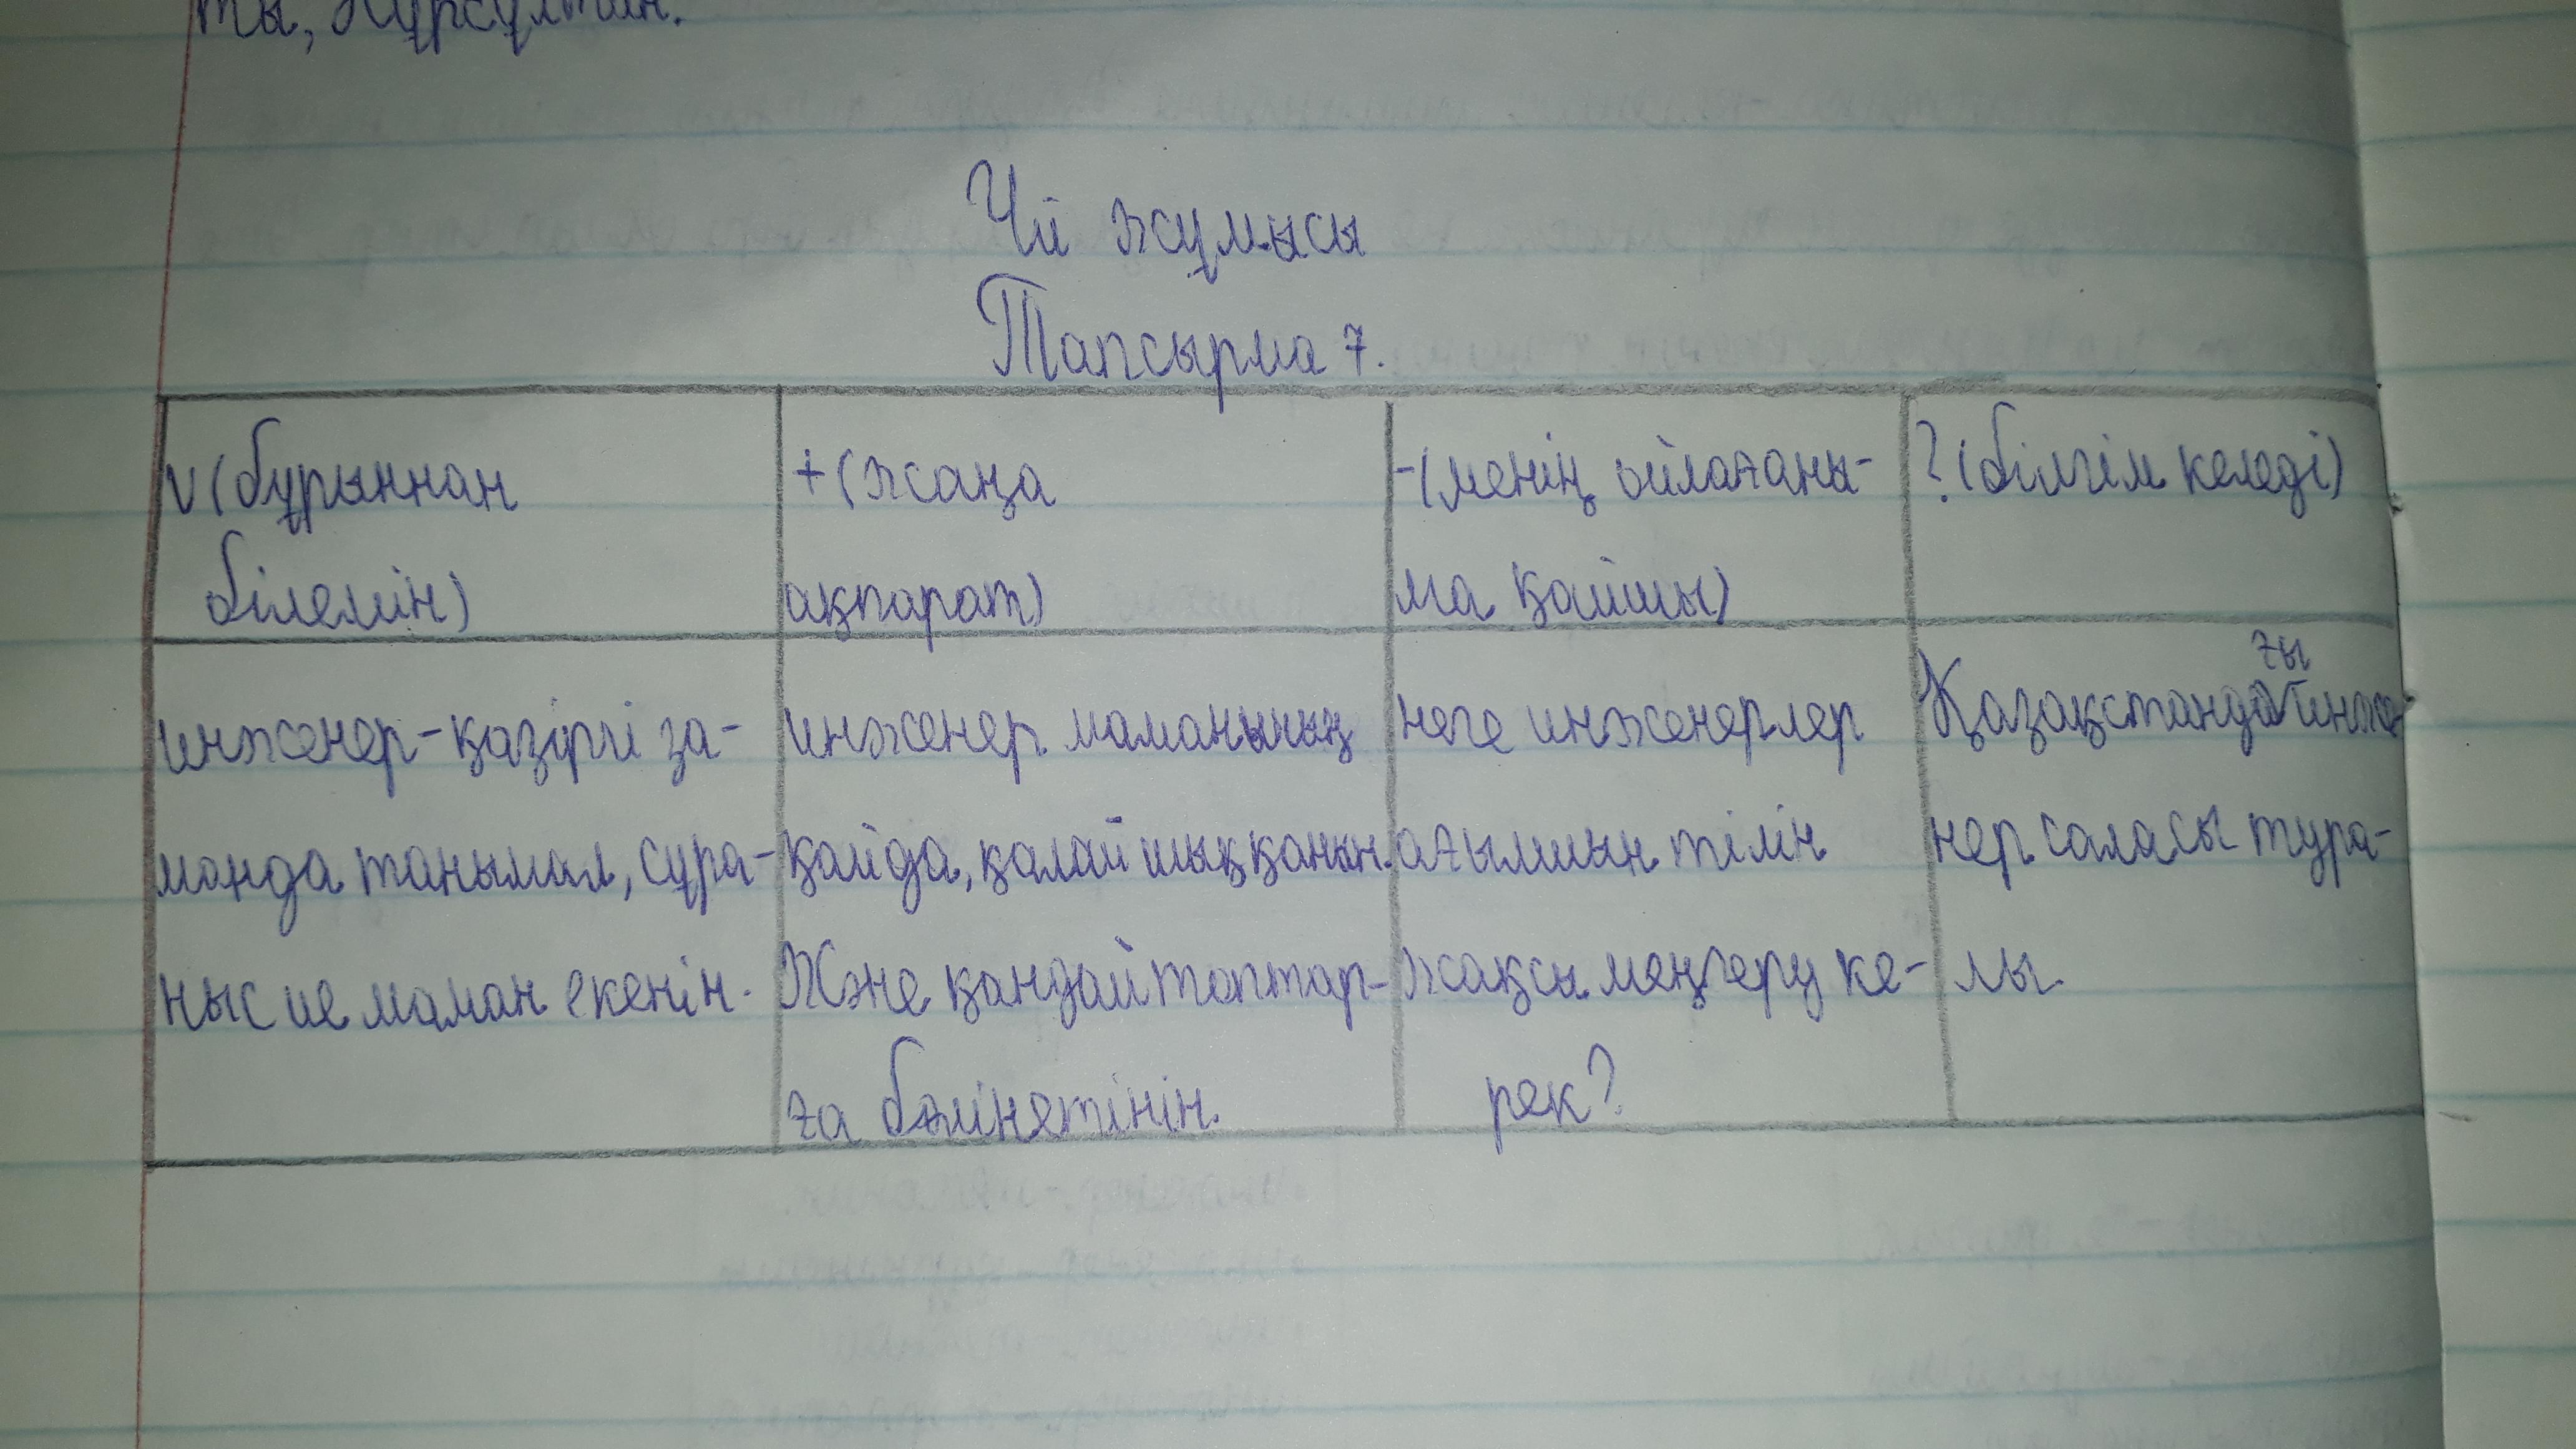 ты, Нұрсұлтан.
Үй жұмысы
Тапсырма 7.
v (бұрыннан
білемін)
+ (жаңа
ақпарат)
- (менің ойлағаны-
ма қайшы)
? (білгім келеді)
инженер - қазіргі за-
манда танымал, сұра-
ныс ие маман екенін.
инженер маманының
қайда, қалай шыққанын.
Және қандай топтар-
ға бөлінетінін.
неге инженерлер
ағылшын тілін
жақсы меңгеру ке-
рек?
ғы
Қазақстанда инже-
нер саласы тура-
лы.